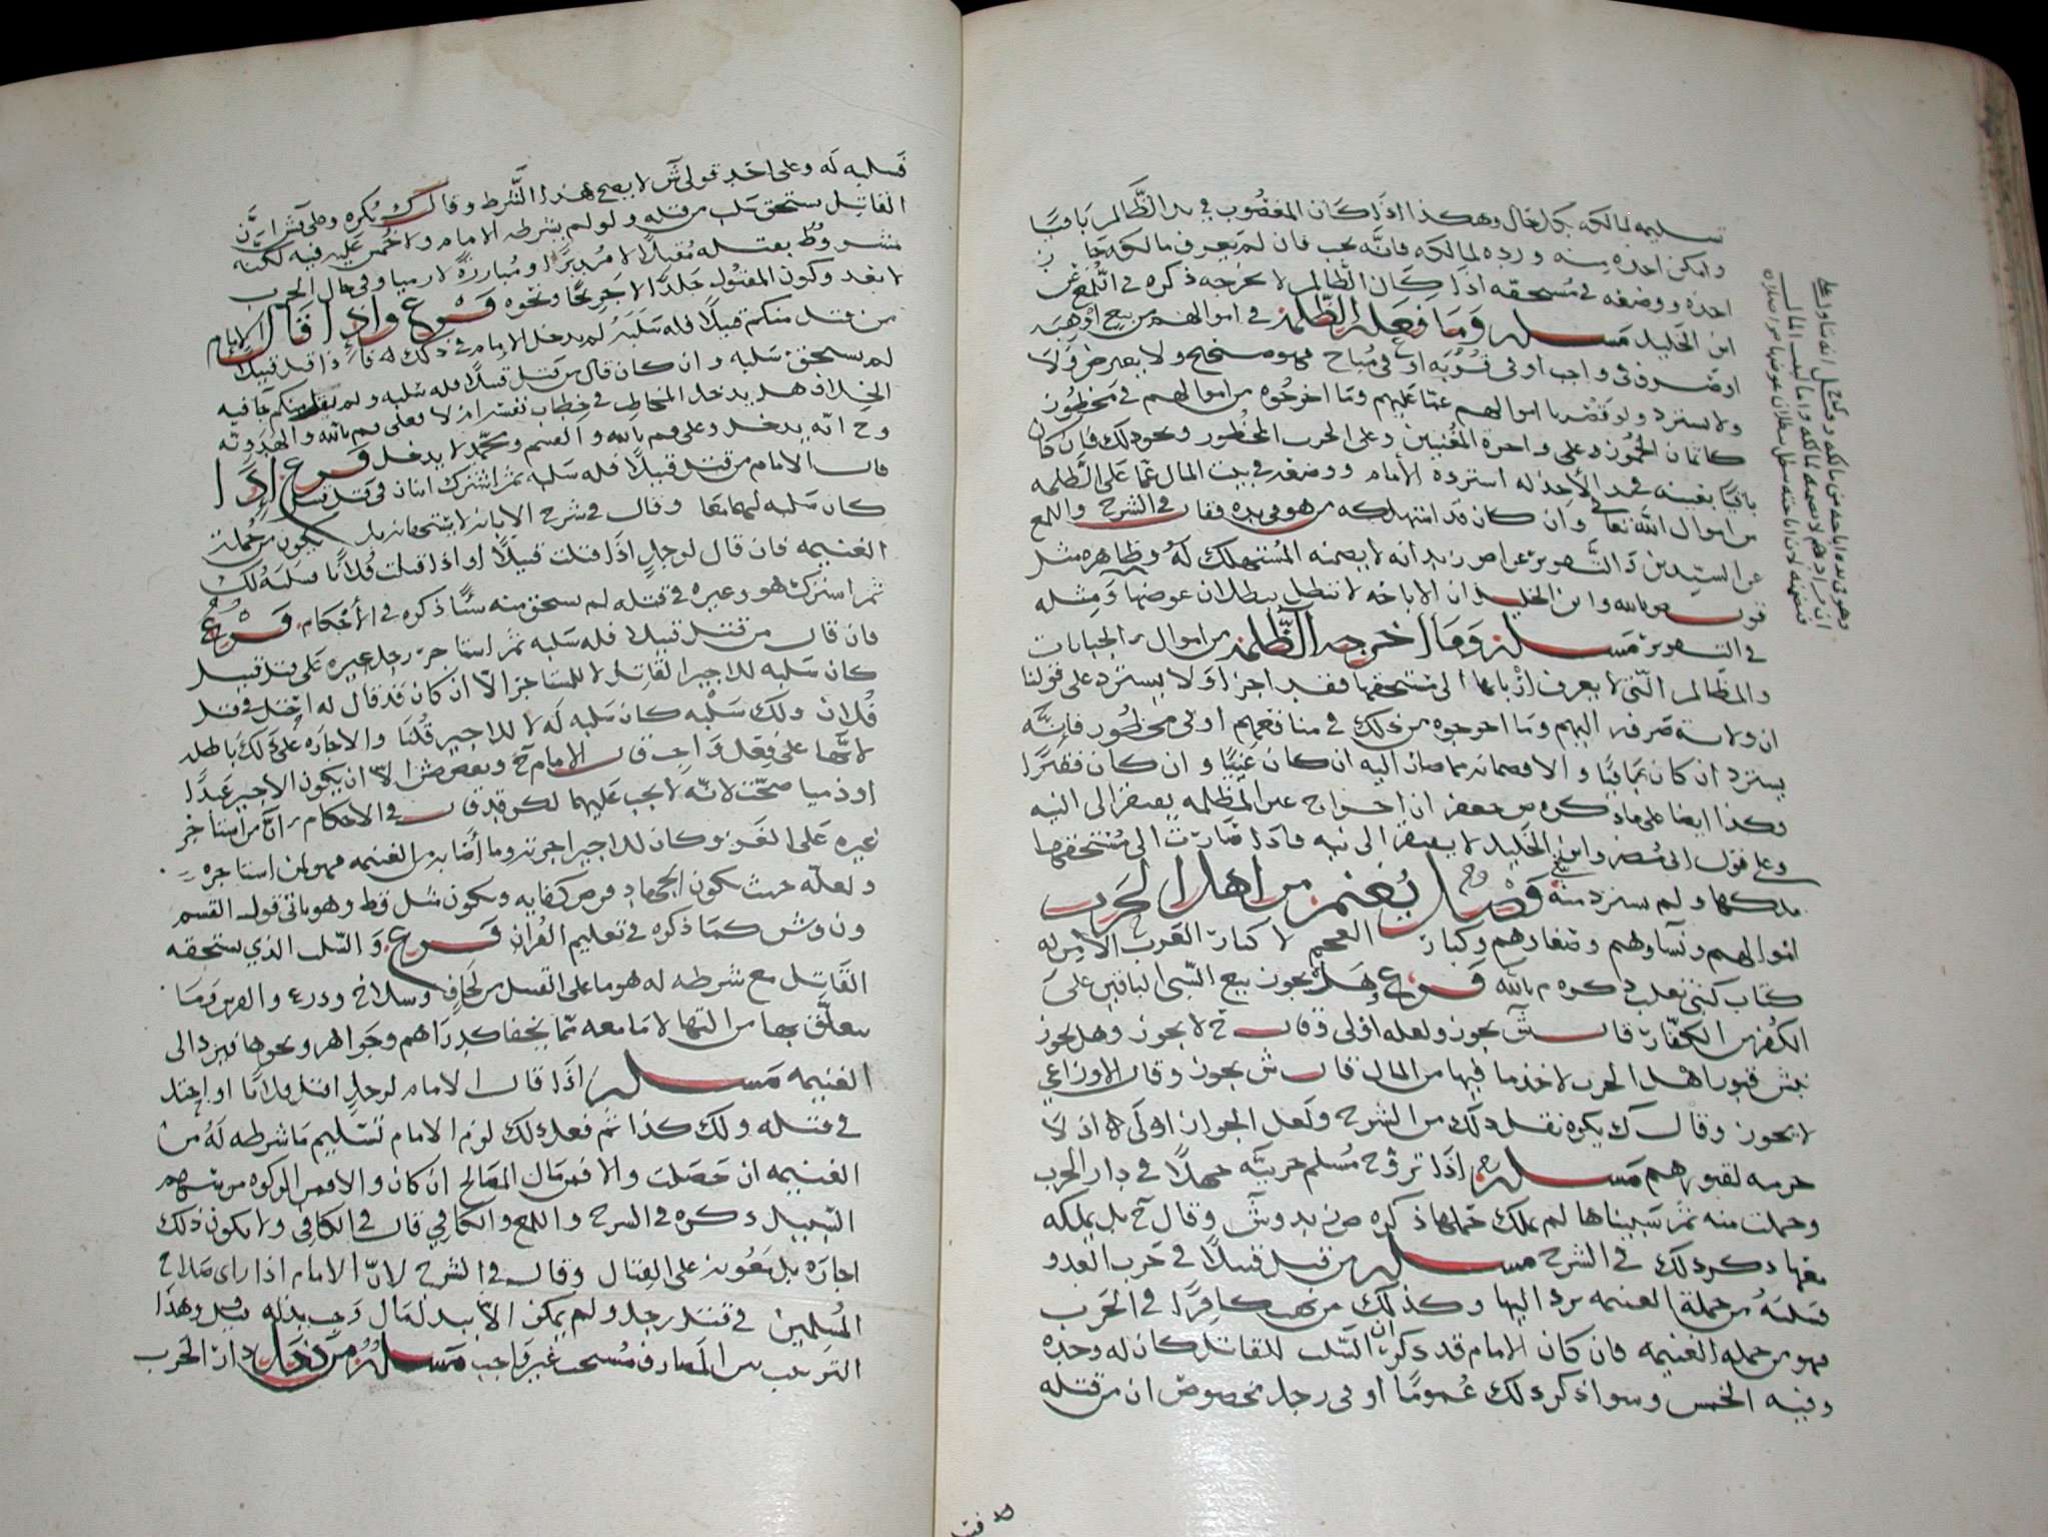 تسليمه لمالكه بكل حال وهكذا اذا كان المغصوب في يد الظالم باقيا
وامكن اخذه منه ورده لمالكه فانه يجب فان لم يعرف مالكه جاز
اخذه ووضعه في مستحقه اذا كان الظالم لا يخرجه ذكره في اللمع عن
ابن الخليل مسله وما فعله الظلمة في اموالهم من بيع او هبة
او صرف في واجب او في قربة او في مباح فهو صحيح ولا يعترض ولا
ولا يسترد ولو قصر باموالهم عما عليهم وما اخرجوه من اموالهم في محظور
كاثمان الخمور وعلى واجرة المغنيين وعلى الحرب المحظور ونحو ذلك فان كان
باقيا بعينه في يد الآخذ له استرده الامام ووضعه في بيت المال عما على الظلمه
من اموال الله تعالى وان كان قد استهلكه من هو في يده فقال في الشرح واللمع
عن السيدين ذ التصوير عن انه لا يضمنه المستهلك له وظاهره مثل
قول ص بالله وابن الخليل ان الاباحه لا تبطل ببطلان عوضها ومثله
في التصوير مسله وما اخرجه الظلمه من اموال الجبايات
والمظالم التي لا يعرف اربابها الى مستحقها فقد اجزا ولا يسترد على قولنا
ان ولاية صرفه اليهم وما اخرجوه من ذلك في منافعهم او في محظور فانه
يسترد ان كان باقيا والا فضمانه مما صار اليه ان كان غنيا وان كان فقيرا
فكذا ايضا على ما ذكره ص جعفر ان اخراج عين المظلمه يفتقر الى النيه
وعلى قول ابي مضر وابن الخليل لا يفتقر الى نيه فاذا صارت الى مستحقها
ملكها ولم يسترد منه فصل يغنم من اهل الحرب
اموالهم ونساوهم وصغارهم وكبار العجم لا كبار العرب الا من له
كتاب كبني تغلب ذكره م بالله فرع وهل يجوز بيع السبي الباقين على
الكفر من الكفار قال ش يجوز ولعله اولى وقال ح لا يجوز وهل يجوز
نبش قبور اهل الحرب لاخذ ما فيها من المال قال ش يجوز وقال الاوزاعي
لا يجوز وقال ك يكره نقل ذلك من الشرح ولعل الجواز اولى اذ لا
حرمه لقبورهم مسله اذا تزوج مسلم حربيه جهلا في دار الحرب
وحملت منه ثم سبيناها لم يملك حملها ذكره ض زيد وش وقال ح بل يملكه
معها ذكر ذلك في الشرح مسله من قتل قتيلا في حرب العدو
فسلبه من جملة الغنيمه يرد اليها وكذلك من نهب كافرا في الحرب
فهو من جمله الغنيمه فان كان الامام قد ذكر ان السلب للقاتل كان له وحده
وفيه الخمس وسوا ذكر ذلك عموما او في رجل مخصوص ان من قتله
فسلبه له وعلى احد قولي ش لا يصح هذا الشرط وقال ك يكره وعلى قش ان
القاتل يستحق سلب من قتله ولو لم يشرطه الامام ولا خمس عليه فيه لكنه
مشروط بقتله مقبلا لا مدبرا ومبارزة لا رميا وفي حال الحرب
لا بعد وكون المقتول جلدا لا جريحا ونحوه فرع واذا قال الامام
من قتل منكم قتيلا فله سلبه لم يدخل الامام في ذلك له فاذا قتل قتيلا
لم يستحق سلبه وان كان قال من قتل قتيلا فله سلبه ولم يقل منكم جا فيه
الخلاف هل يدخل المخاطب في خطاب نفسه ام لا فعلى م بالله والهدويه
وح انه يدخل وعلى قم بالله والقسم ومحمد لا يدخل فرع اذا
قال الامام من قتل قتيلا فله سلبه ثم اشترك اثنان في قتل قتيل
كان سلبه لهما معا وقال في شرح الابانه لا يستحقانه بل يكون من جملة
الغنيمه فان قال لرجل اذا قتلت قتيلا او اذا قتلت فلانا فسلبه لك
ثم اشترك هو وغيره في قتله لم يستحق منه شيئا ذكره في الاحكام فرع
فان قال من قتل قتيلا فله سلبه ثم استاجر رجل غيره على قتل قتيل
كان سلبه للاجير القاتل لا للمستاجر الا ان كان قد قال له اقتل
فلان ولك سلبه كان سلبه له لا للاجير قلنا والاجاره على ذلك باطله
لانها على فعل واجب قال الامام ح وبعض ش الا ان يكون الاجير عبدا
او ذميا صحت لانه لا يجب عليهما لكن قد قال في الاحكام ان من استاجر
غيره على الغزو كان للاجير اجرته وما اصابه من الغنيمه فهو لمن استاجره
ولعله حيث يكون الجهاد فرض كفايه ويكون شل فقط وهو ياتي قول القسم
ون وش كما ذكره في تعليم القران فرع والسلب الذي يستحقه
القاتل مع شرطه له هو ما على القتيل من لحاف وسلاح ودرع والفرس وما
يتعلق بها من التها لا ما معه مما يخفا كدراهم وجواهر ونحوها فيرد الى
الغنيمه مسله اذا قال الامام لرجل اقتل فلانا او احتل
في قتله ولك كذا ثم فعل ذلك لزم الامام تسليم ما شرطه له من
الغنيمه ان حصلت والا فمن مال المصالح ان كان والا فمن الزكوه من سهم
السبيل ذكره في الشرح واللمع والكافي قال في الكافي ولا يكون ذلك
اجاره بل معونه على القتال وقال في الشرح لان الامام اذا راى صلاح
المسلمين في قتل رجل ولم يمكن الا ببذل مال وجب بذله وهذا
الترتيب بين المصارف مستحب غير واجب مسله من دخل دار الحرب